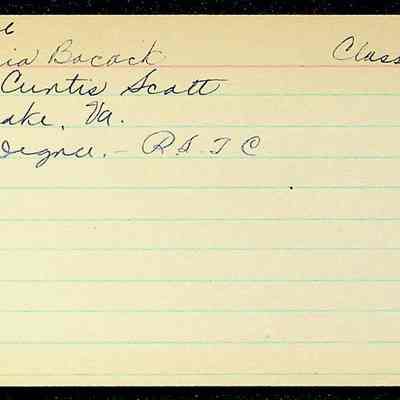 Bocock Class
Curtis Scott
ake, Va.
Degree. - R.S.T.C